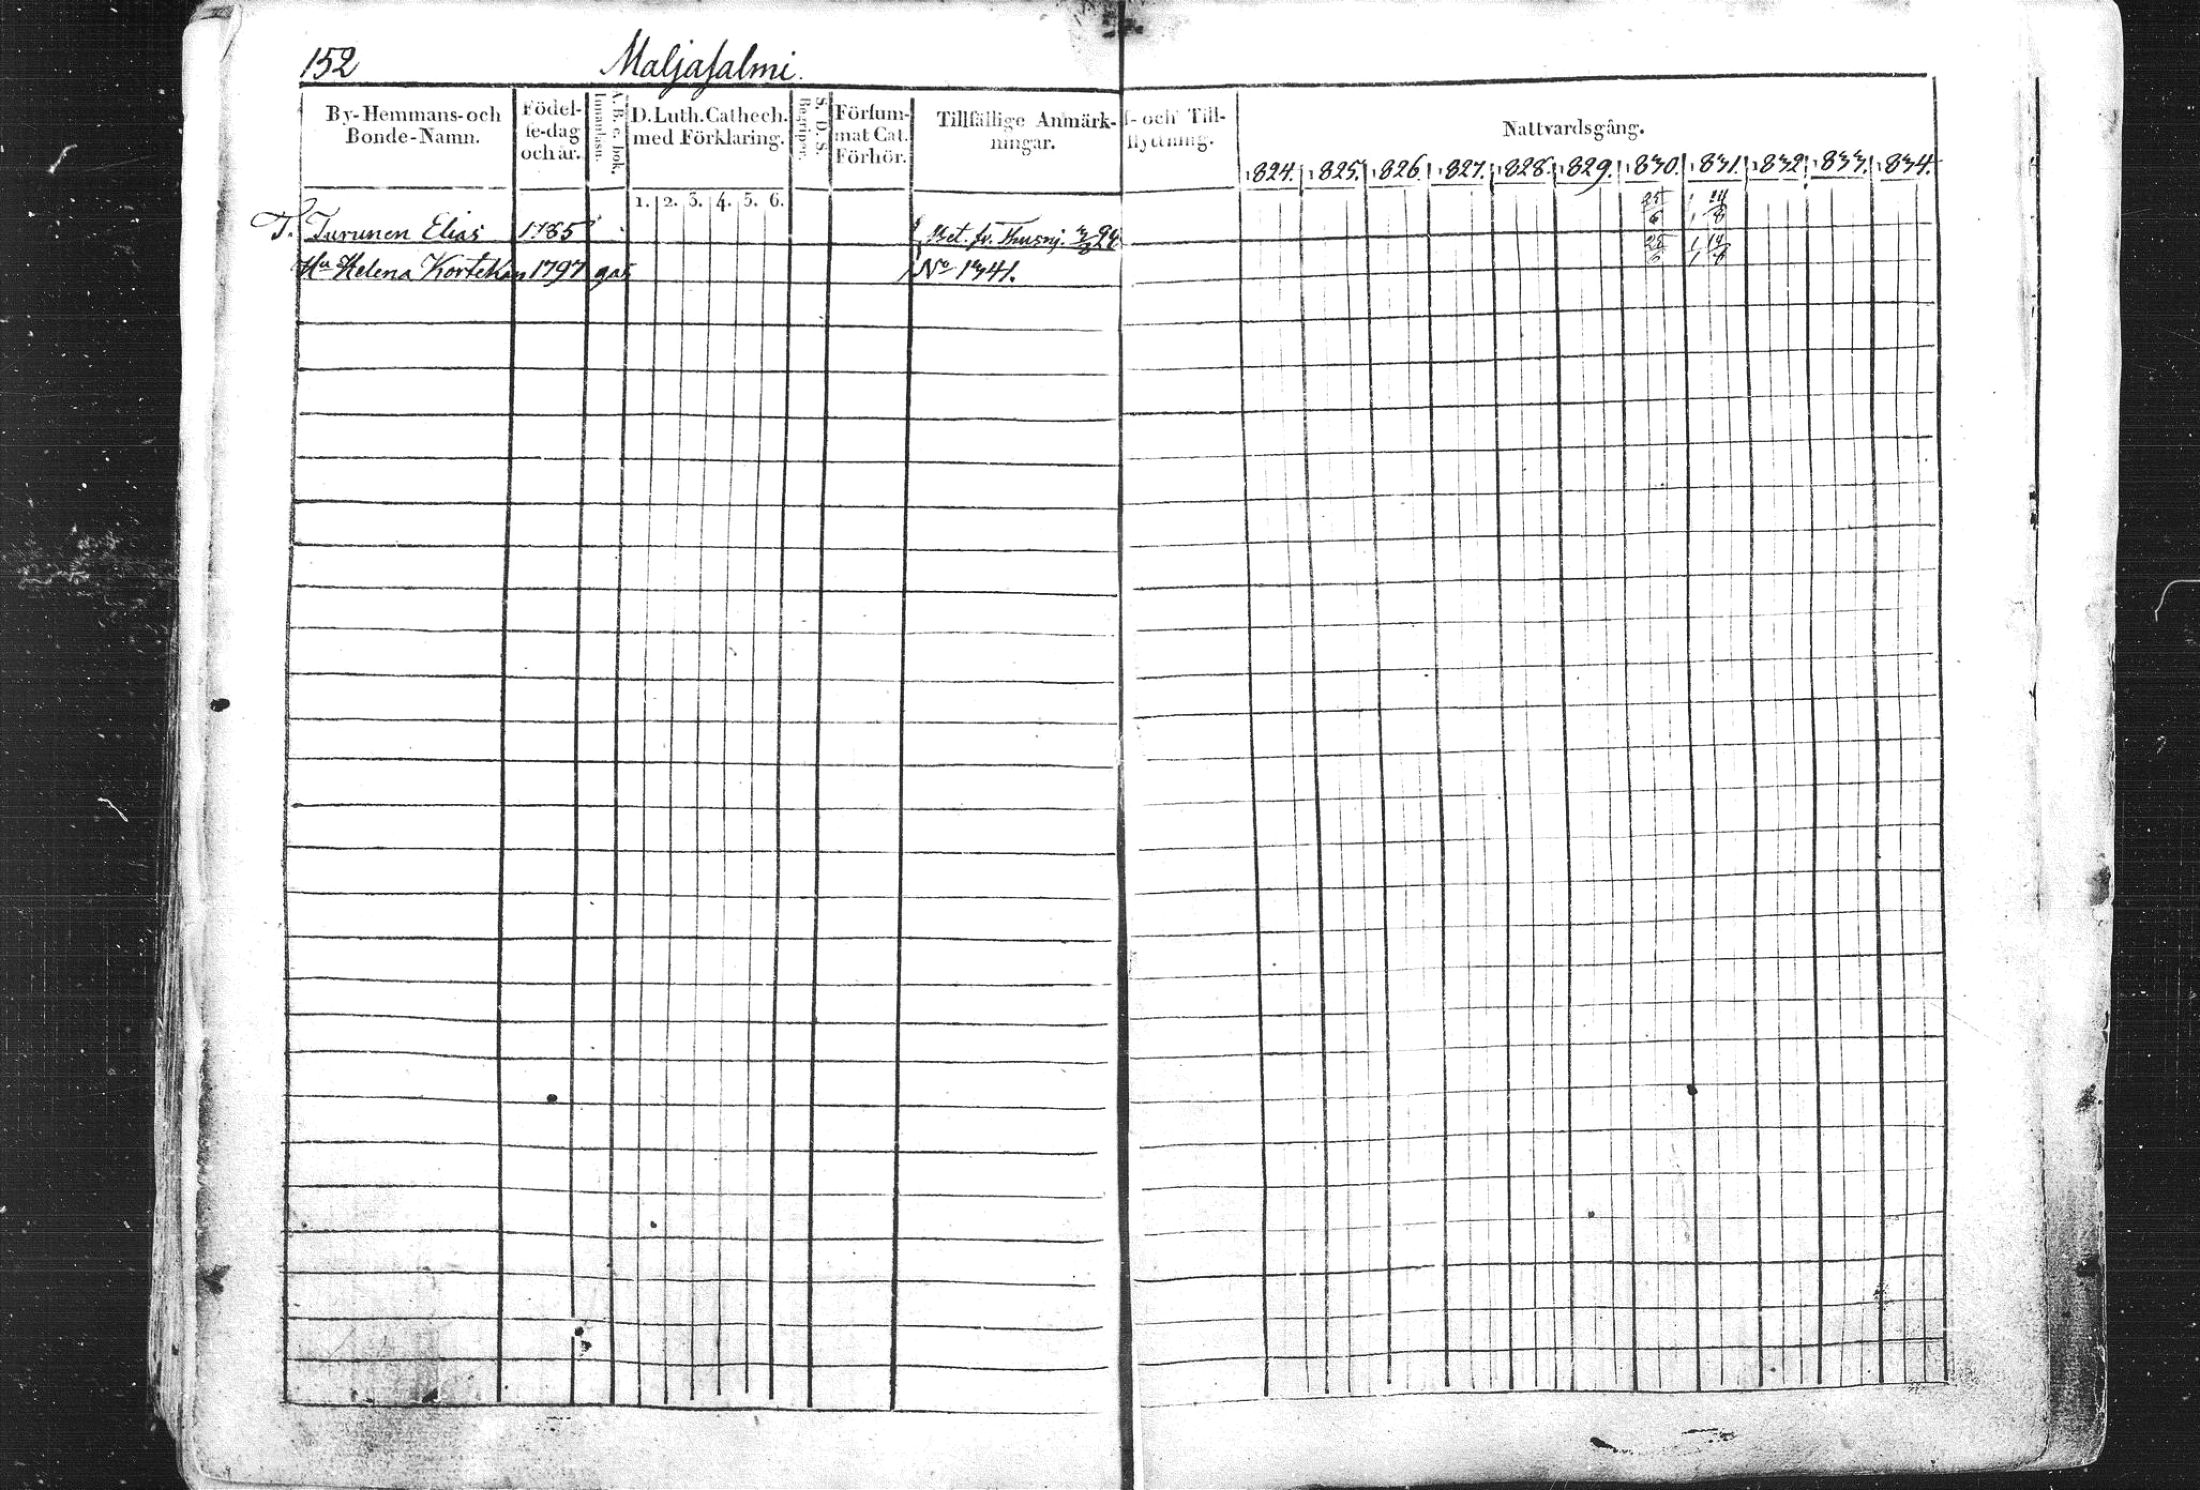 152 Maljasalmi.
By-Hemmans-och Bonde-Namn.
Födel-se-dag och år.
A. B. c. bok.
Innanläsn.
D. Luth. Cathech. med Förklaring.
1. 2. 3. 4. 5. 6.
S. D. S.
Begripp.
Försum-mat Cat. Förhör.
Tillfällige Anmärk-ningar.
f- och Till-flyttning.
Nattvardsgång.
1824. 1825. 1826. 1827. 1828. 1829. 1830. 1831. 1832. 1833. 1834.
T. Turunen Elias 1785
Hu Helena Kortelain 1797
No 1341.